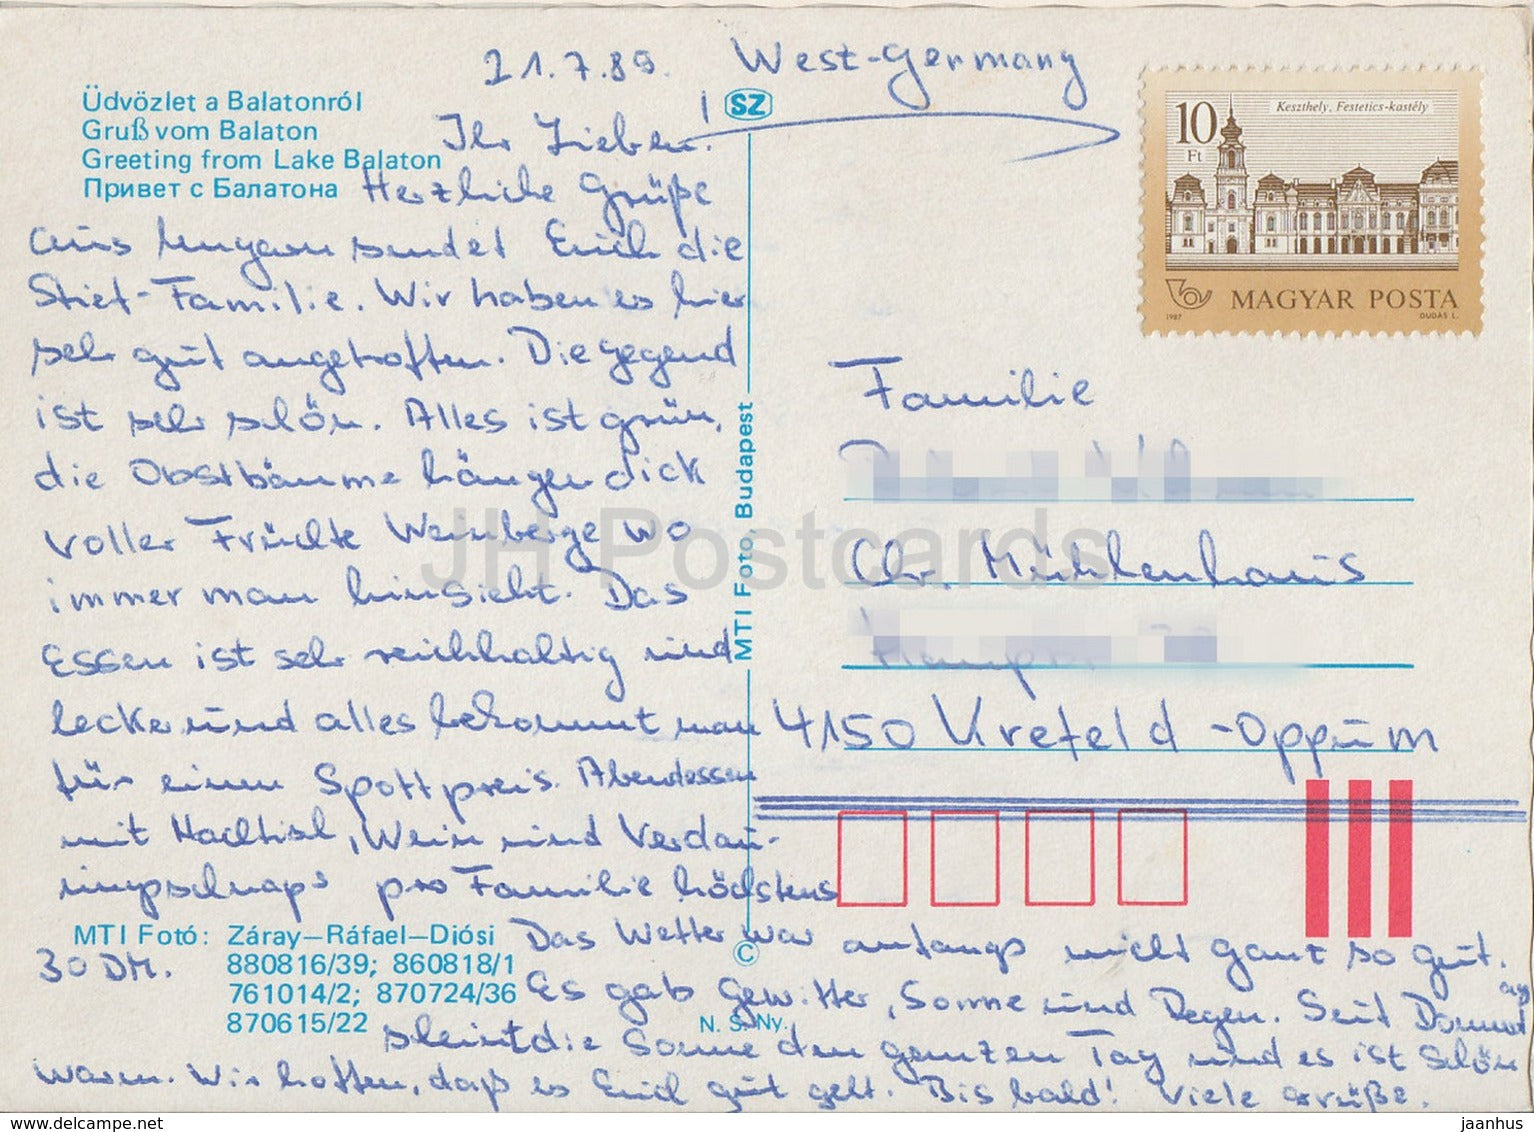 21.7.89. West-Germany
Üdvözlet a Balatonról
Gruß vom Balaton
Greeting from Lake Balaton
Привет с Балатона
SZ
Ihr Lieben!
Herzliche Grüße
aus Ungarn sendet Euch die
Stief-Familie. Wir haben es hier
sehr gut angetroffen. Die gegend
ist sehr schön. Alles ist grün,
die Obstbäume hängen dick
voller Früchte Weinberge wo
immer man hinsieht. Das
Essen ist sehr reichhaltig und
lecker und alles bekommt man
für einen Spottpreis. Abendessen
mit Nachtisch, Wein und Verdau-
ungsschnaps pro Familie höchstens
30 DM.
Das Wetter war anfangs nicht ganz so gut.
Es gab Gewitter, Sonne und Regen. Seit Donnerst
ag
scheint die Sonne den ganzen Tag und es ist schön
warm. Wir hoffen, daß es Euch gut geht. Bis bald! Viele Grüße.
MTI Fotó: Záray–Ráfael–Diósi
880816/39; 860818/1
761014/2; 870724/36
870615/22
N. S. Ny.
©
MTI Foto, Budapest
10
Ft
Keszthely, Festetics-kastély
MAGYAR POSTA
1987
DUDÁS L.
Familie
Chr. Mühlenhaus
4150 Krefeld-Oppum
JH Postcards
delcampe.net
jaanhus